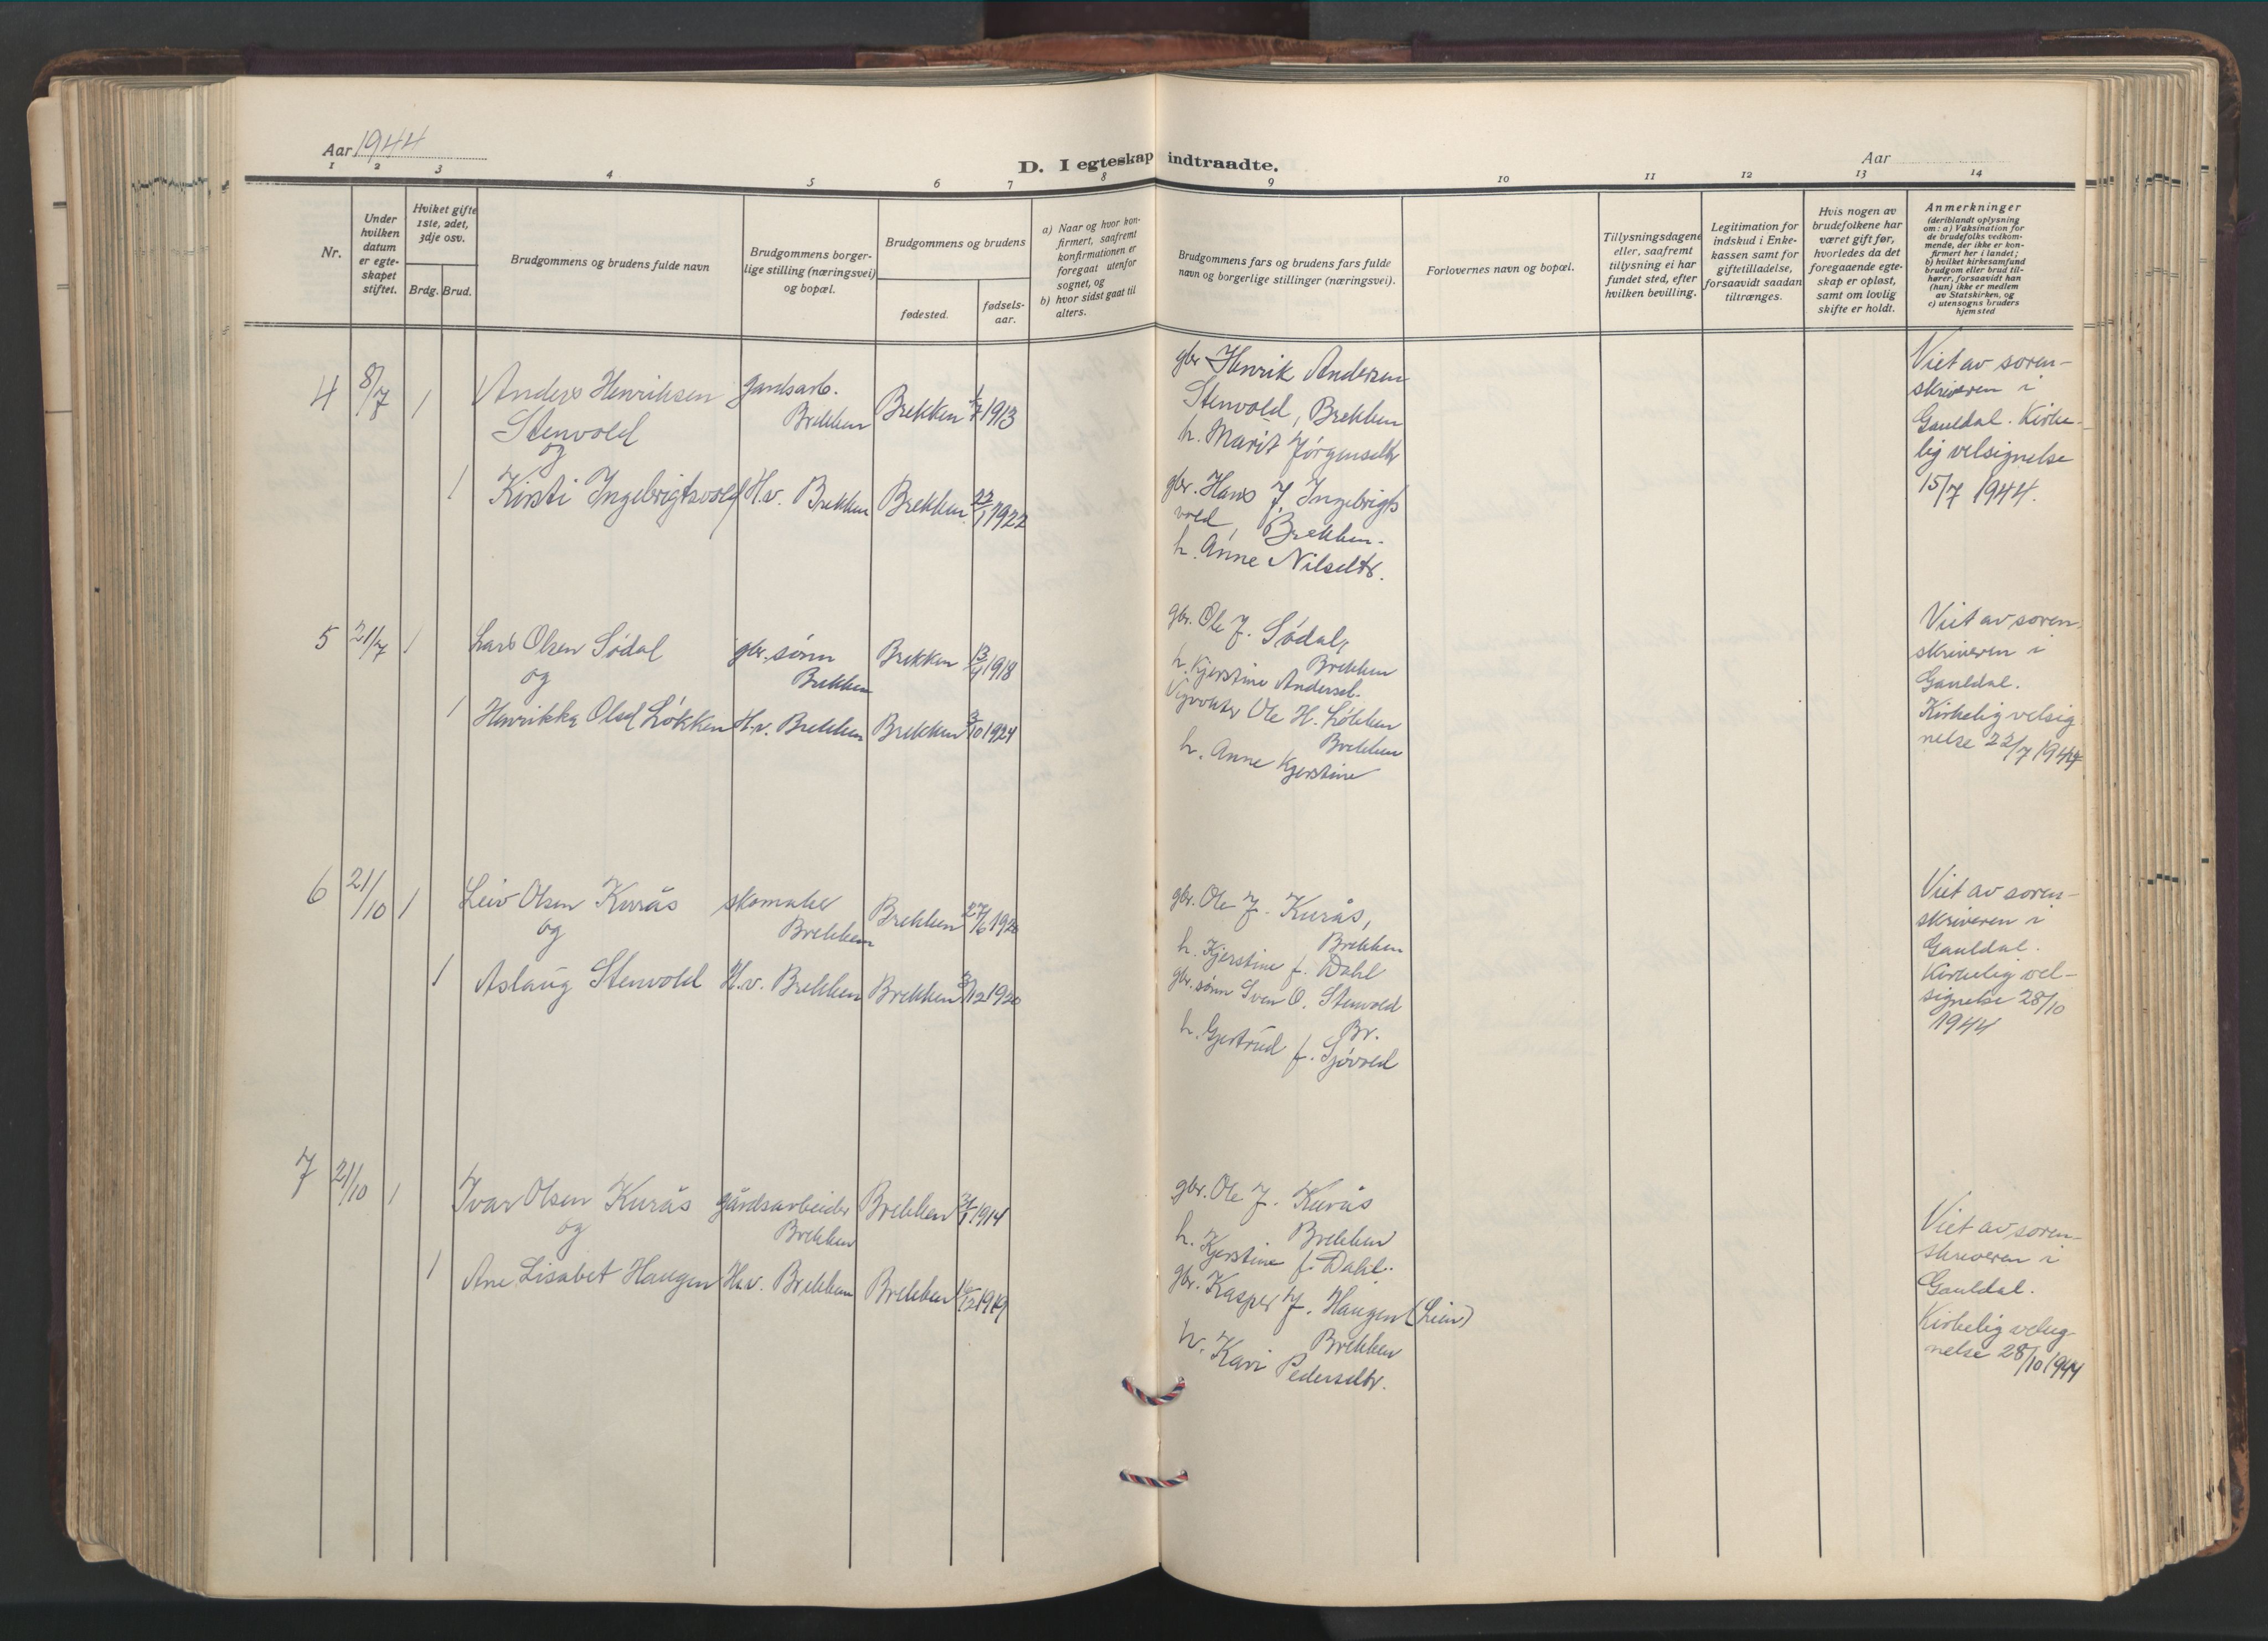 Aar 1944
D. I egteskap indtraadte.
Aar
1 2 3 4 5 6 7 8 9 10 11 12 13 14
Nr.
Under
hvilken
datum
er egte-
skapet
stiftet.
Hvilket gifte
1ste, 2det,
3dje osv.
Brdg. Brud.
Brudgommens og brudens fulde navn
Brudgommens borger-
lige stilling (næringsvei)
og bopæl.
Brudgommens og brudens
fødested.
fødsels-
aar.
a) Naar og hvor kon-
firmert, saafremt
konfirmationen er
foregaat utenfor
sognet, og
b) hvor sidst gaat til
alters.
Brudgommens fars og brudens fars fulde
navn og borgerlige stillinger (næringsvei).
Forlovernes navn og bopæl.
Tillysningsdagene
eller, saafremt
tillysning ei har
fundet sted, efter
hvilken bevilling.
Legitimation for
indskud i Enke-
kassen samt for
giftetilladelse,
forsaavidt saadan
tiltrænges.
Hvis nogen av
brudefolkene har
været gift før,
hvorledes da det
foregaaende egte-
skap er opløst,
samt om lovlig
skifte er holdt.
Anmerkninger
(deriblandt oplysning
om: a) Vaksination for
de brudefolks vedkom-
mende, der ikke er kon-
firmert her i landet;
b) hvilket kirkesamfund
brudgom eller brud til-
hører, forsaavidt han
(hun) ikke er medlem
av Statskirken, og
c) utensogns bruders
hjemsted
4 8/7 1 Anders Henriksen gardsarb.
Stenvold Brekken Brekken 1/7 1913
og
1 Kirsti Ingebrigtsvold H.v. Brekken Brekken 1922
gbr Henrik Andersen
Stenvold, Brekken
h. Marit Jørgensdtr
gbr. Hans J. Ingebrigts
vold, Brekken.
h. Anne Nilsdtr.
Viet av soren-
skriveren i
Gauldal. Kirke-
lig velsignelse
15/7 1944.
5 21/7 1 Lars Olsen Sødal gbr.sønn Brekken 1918
og Brekken
1 Henrikka Olsd Løkken H.v. Brekken Brekken 3/10 1924
gbr. Ole J. Sødal,
Brekken
h. Kjerstine Andersd.
Vegvokter Ole H. Løkken
Brekken
h. Anne Kjerstine
Viet av soren-
skriveren i
Gauldal.
Kirkelig velsig
nelse 22/7 1944
6 21/10 1 Leiv Olsen Kurås skomaker Brekken 27/6 1920
og Brekken
1 Aslaug Stenvold H.v. Brekken Brekken 3/12 1920
gbr. Ole J. Kurås,
Brekken
h. Kjerstine f. Dahl
gbr.sønn Sven O. Stenvold
Br.
h. Gjertrud f. Sjøvold
Viet av soren-
skriveren i
Gauldal.
Kirkelig vel-
signelse 28/10
1944
7 21/10 1 Ivar Olsen Kurås gårdsarbeider Brekken 1914
og Brekken
1 Ane Lisabet Haugen H.v. Brekken Brekken 1919
gbr. Ole J. Kurås
Brekken
h. Kjerstine f. Dahl.
gbr. Kasper J. Haugen (Lien)
Brekken
h. Kari Pedersdtr.
Viet av soren-
skriveren i
Gauldal.
Kirkelig velsig
nelse 28/10 1944